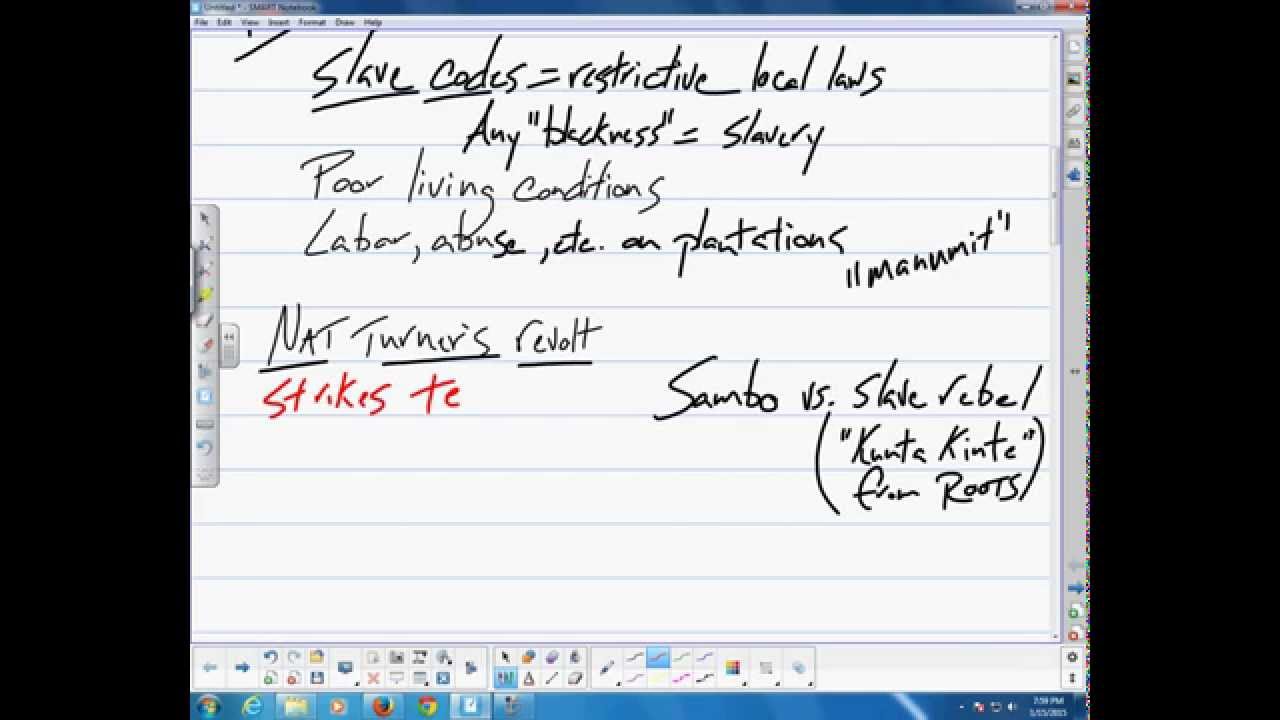 Untitled * - SMART Notebook
File Edit View Insert Format Draw Help
Slave codes = restrictive local laws
Any "blackness" = slavery
Poor living conditions
Labor, abuse, etc. on plantations
"manumit"
NAT Turner's revolt
strikes te
Sambo vs. slave rebel
("Kunta Kinte"
from ROOTS)
7:59 PM